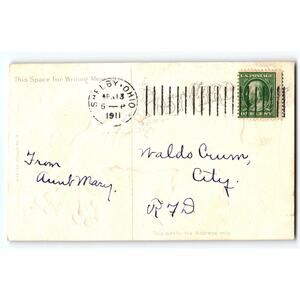 This Space for Writing
SHELBY. OHIO
APR 13
6 - P
1911
U.S. POSTAGE
ONE CENT
From
Aunt Mary.
Waldo Crum,
City.
RFD
This side for the Address only